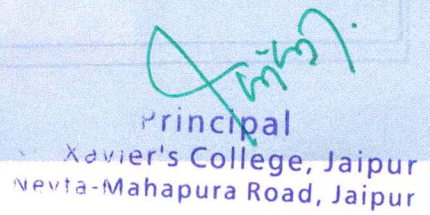 Principal
Xavier's College, Jaipur
Nevta-Mahapura Road, Jaipur